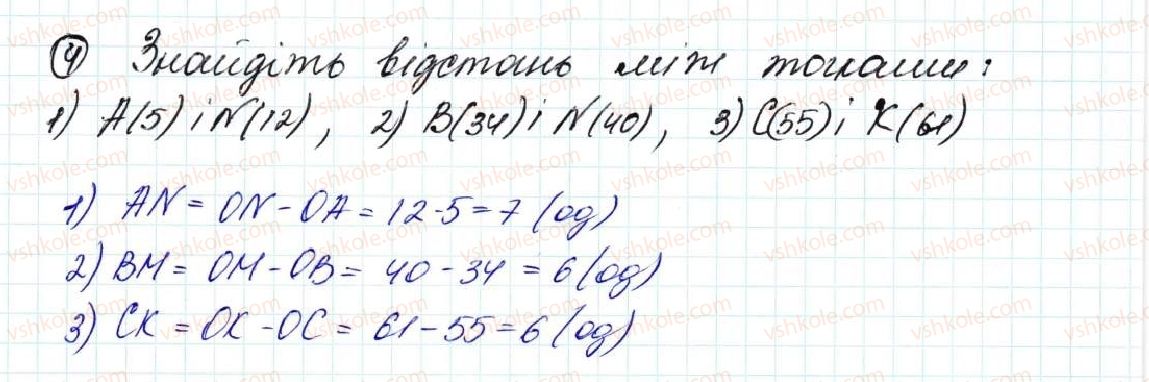 ④ Знайдіть відстань між точками:
1) A(5) і N(12), 2) B(34) і N(40), 3) C(55) і K(61)
1) AN = ON - OA = 12 - 5 = 7 (од)
2) BM = OM - OB = 40 - 34 = 6 (од)
3) CK = OK - OC = 61 - 55 = 6 (од)